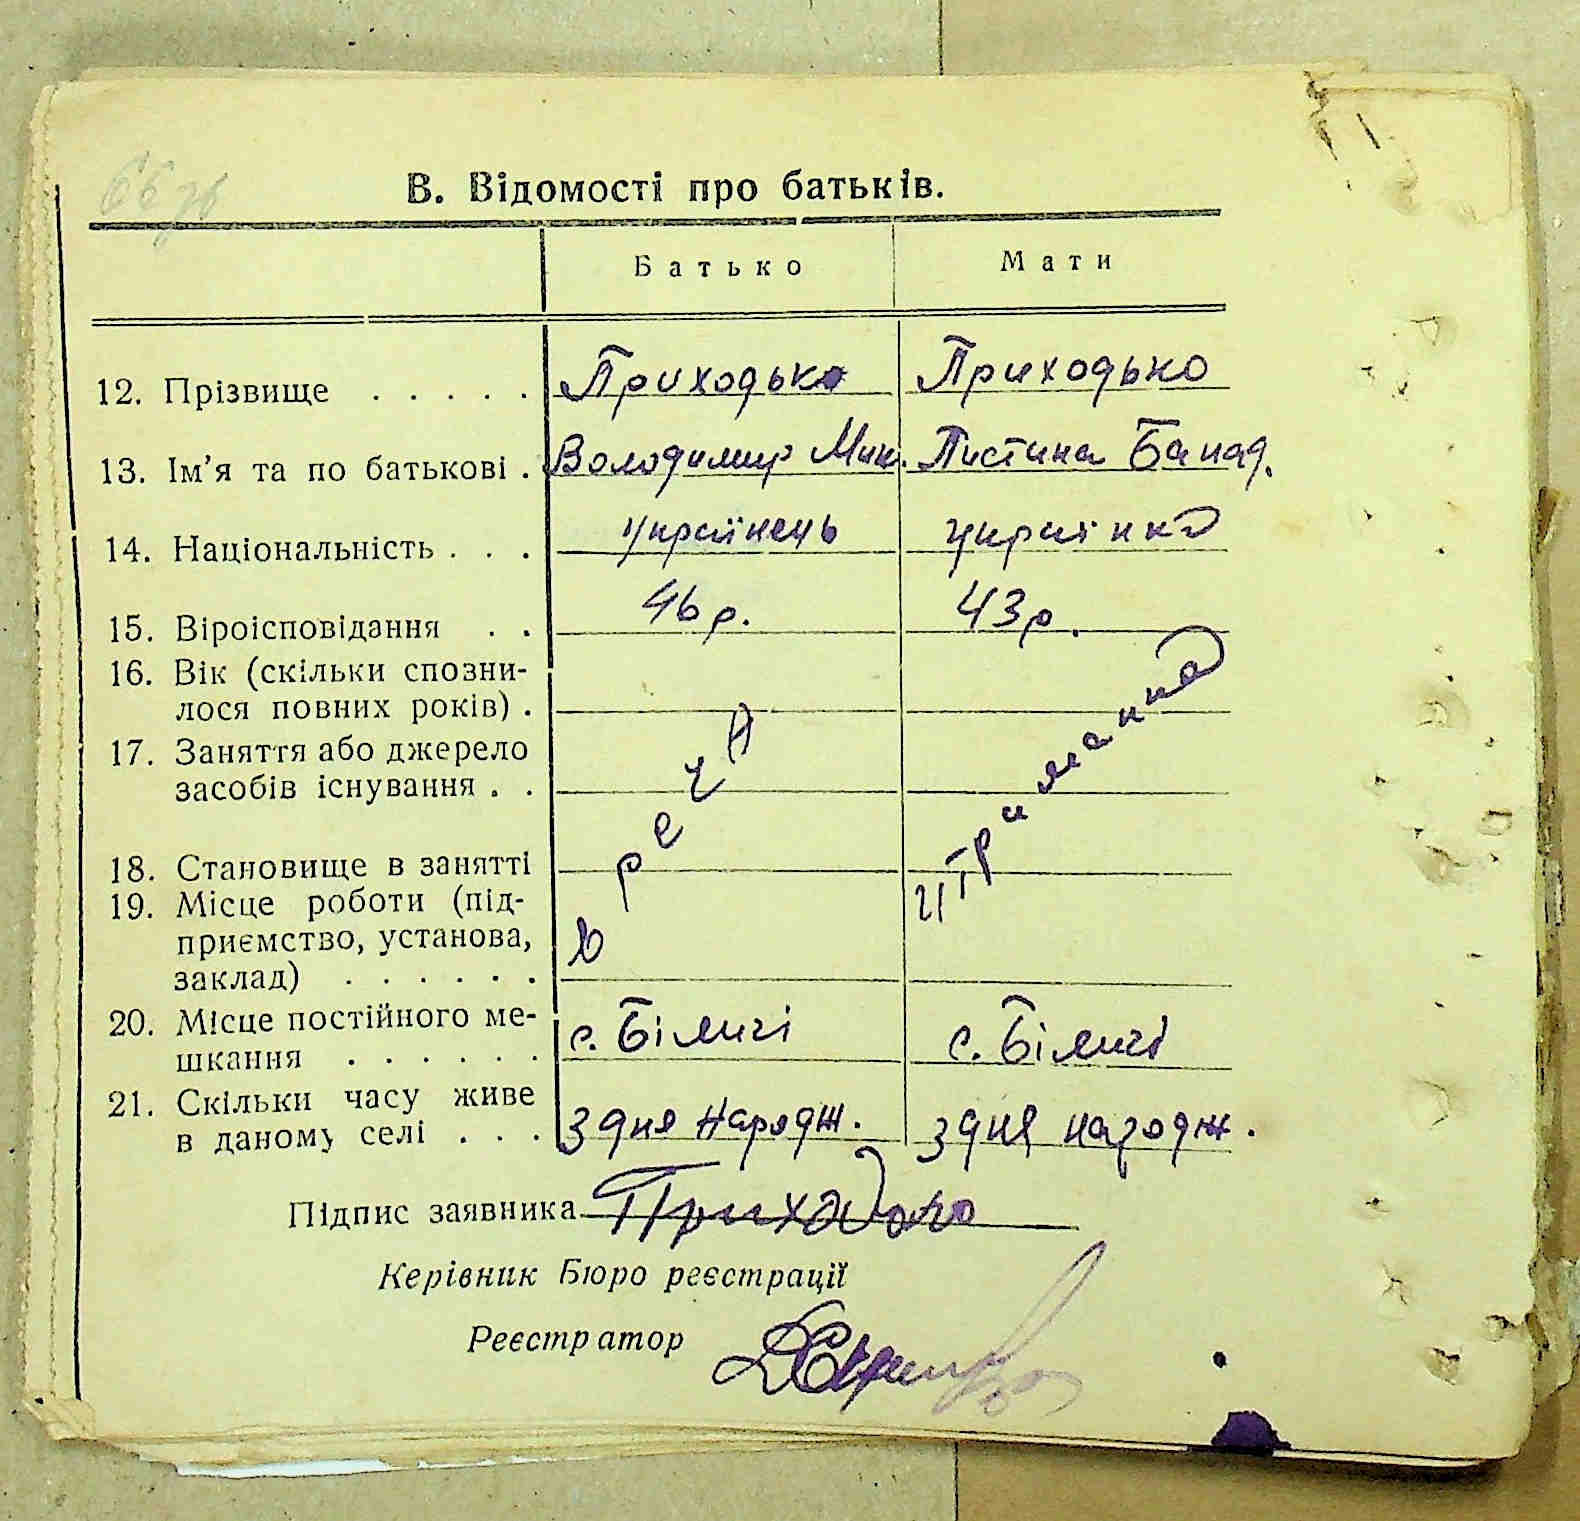 В. Відомості про батьків.
Батько Мати
12. Прізвище . . . . . Приходько Приходько
13. Ім’я та по батькові . Володимир Мик. Пистина Банад.
14. Національність . . . українець українка
15. Віроісповідання . . 46 р. 43 р.
16. Вік (скільки спозни-
лося повних років) .
17. Заняття або джерело
засобів існування . .
18. Становище в занятті
19. Місце роботи (під-
приємство, установа,
заклад) . . . . . .
утриманка
20. Місце постійного ме-
шкання . . . . . . с. Біличі с. Біличі
21. Скільки часу живе
в даному селі . . . з дня народж. з дня народж.
Підпис заявника Приходько
Керівник Бюро реєстрації
Реєстратор